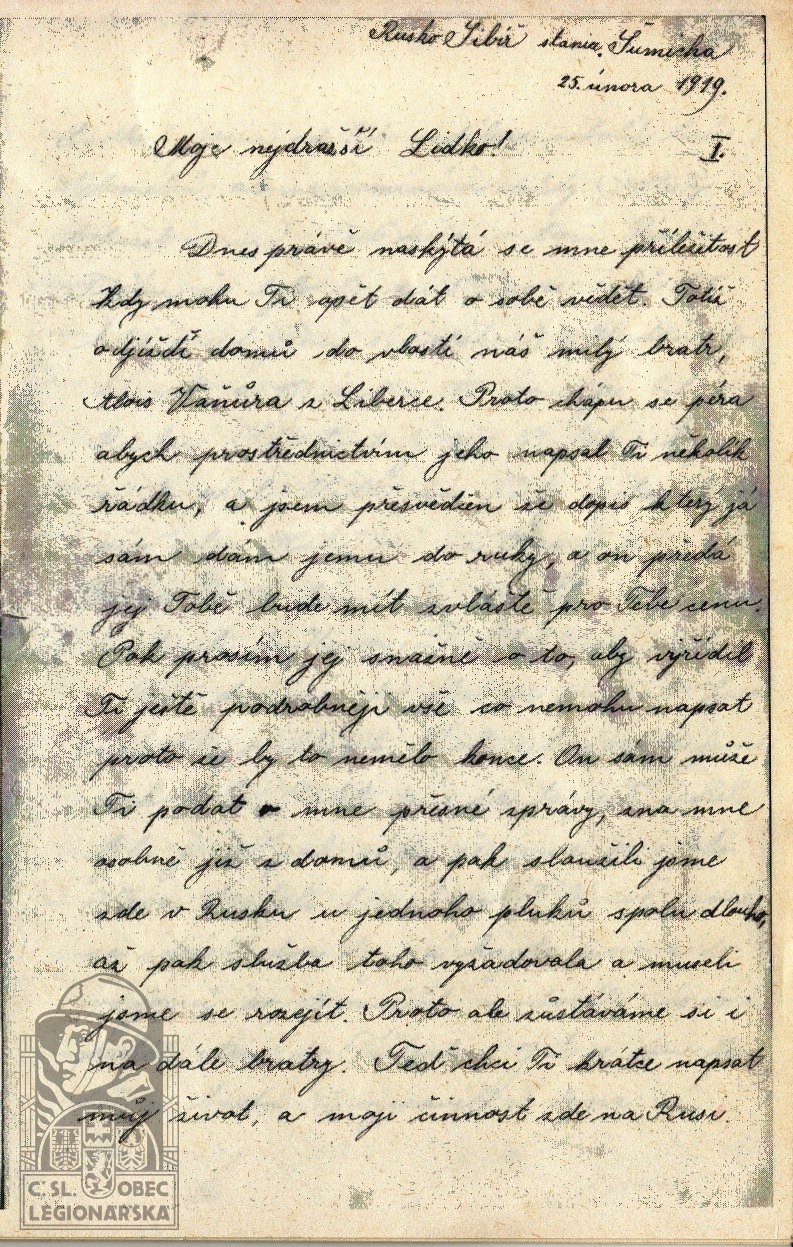 Rusko Sibíř stanice Šumicha
25. února 1919.
Moje nejdražší Lidko! I.
Dnes právě naskýtá se mne příležitost
kdy mohu Ti opět dát o sobě vědět. Totiž
odjíždí domů do vlasti náš milý bratr,
Alois Vaňůra z Liberce. Proto chápu se péra
abych prostřednictvím jeho napsal Ti několik
řádku, a jsem přesvědčen že dopis který já
sám dám jemu do ruky, a on předá
jej Tobě bude mít zvláště pro Tebe cenu.
Pak prosím jej snažně o to, aby vyřídil
Ti ještě podrobněji vše co nemohu napsat
proto že by to nemělo konce. On sám může
Ti podat o mne přesné zprávy, zna mne
osobně již z domů, a pak sloužili jsme
zde v Rusku u jednoho pluků spolu dlouho,
až pak služba toho vyžadovala a museli
jsme se rozejít. Proto ale zůstáváme si i
na dále bratry. Teď chci Ti krátce napsat
můj život, a moji činnost zde na Rusi.
Č. SL. OBEC
LEGIONÁŘSKÁ